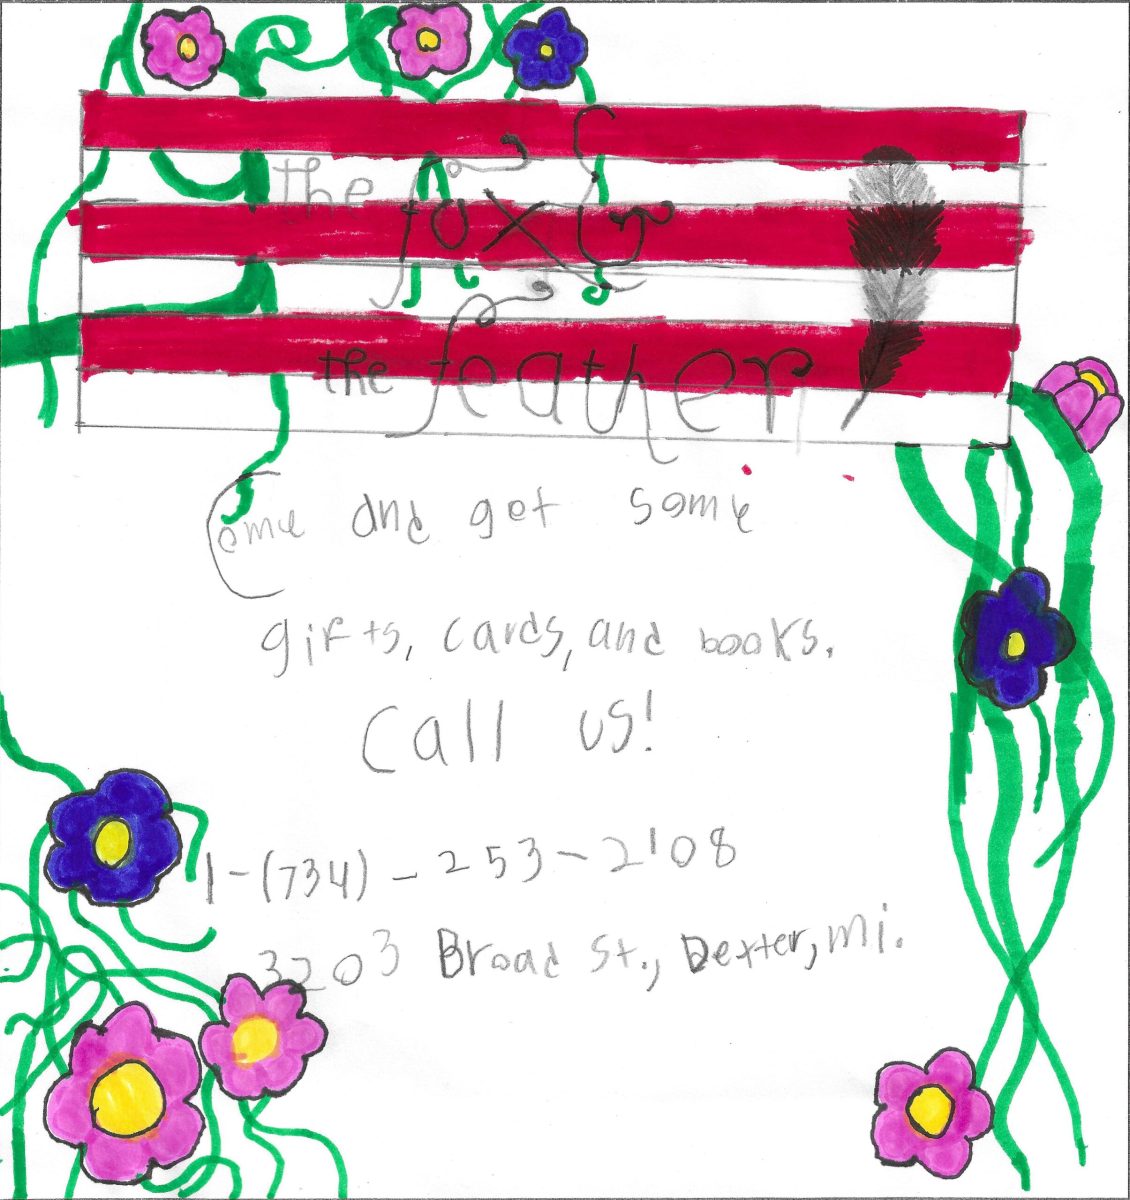 the fox &
the feather
Come and get some
gifts, cards, and books.
Call us!
1-(734)-253-2108
3203 Broad St., Dexter, mi.